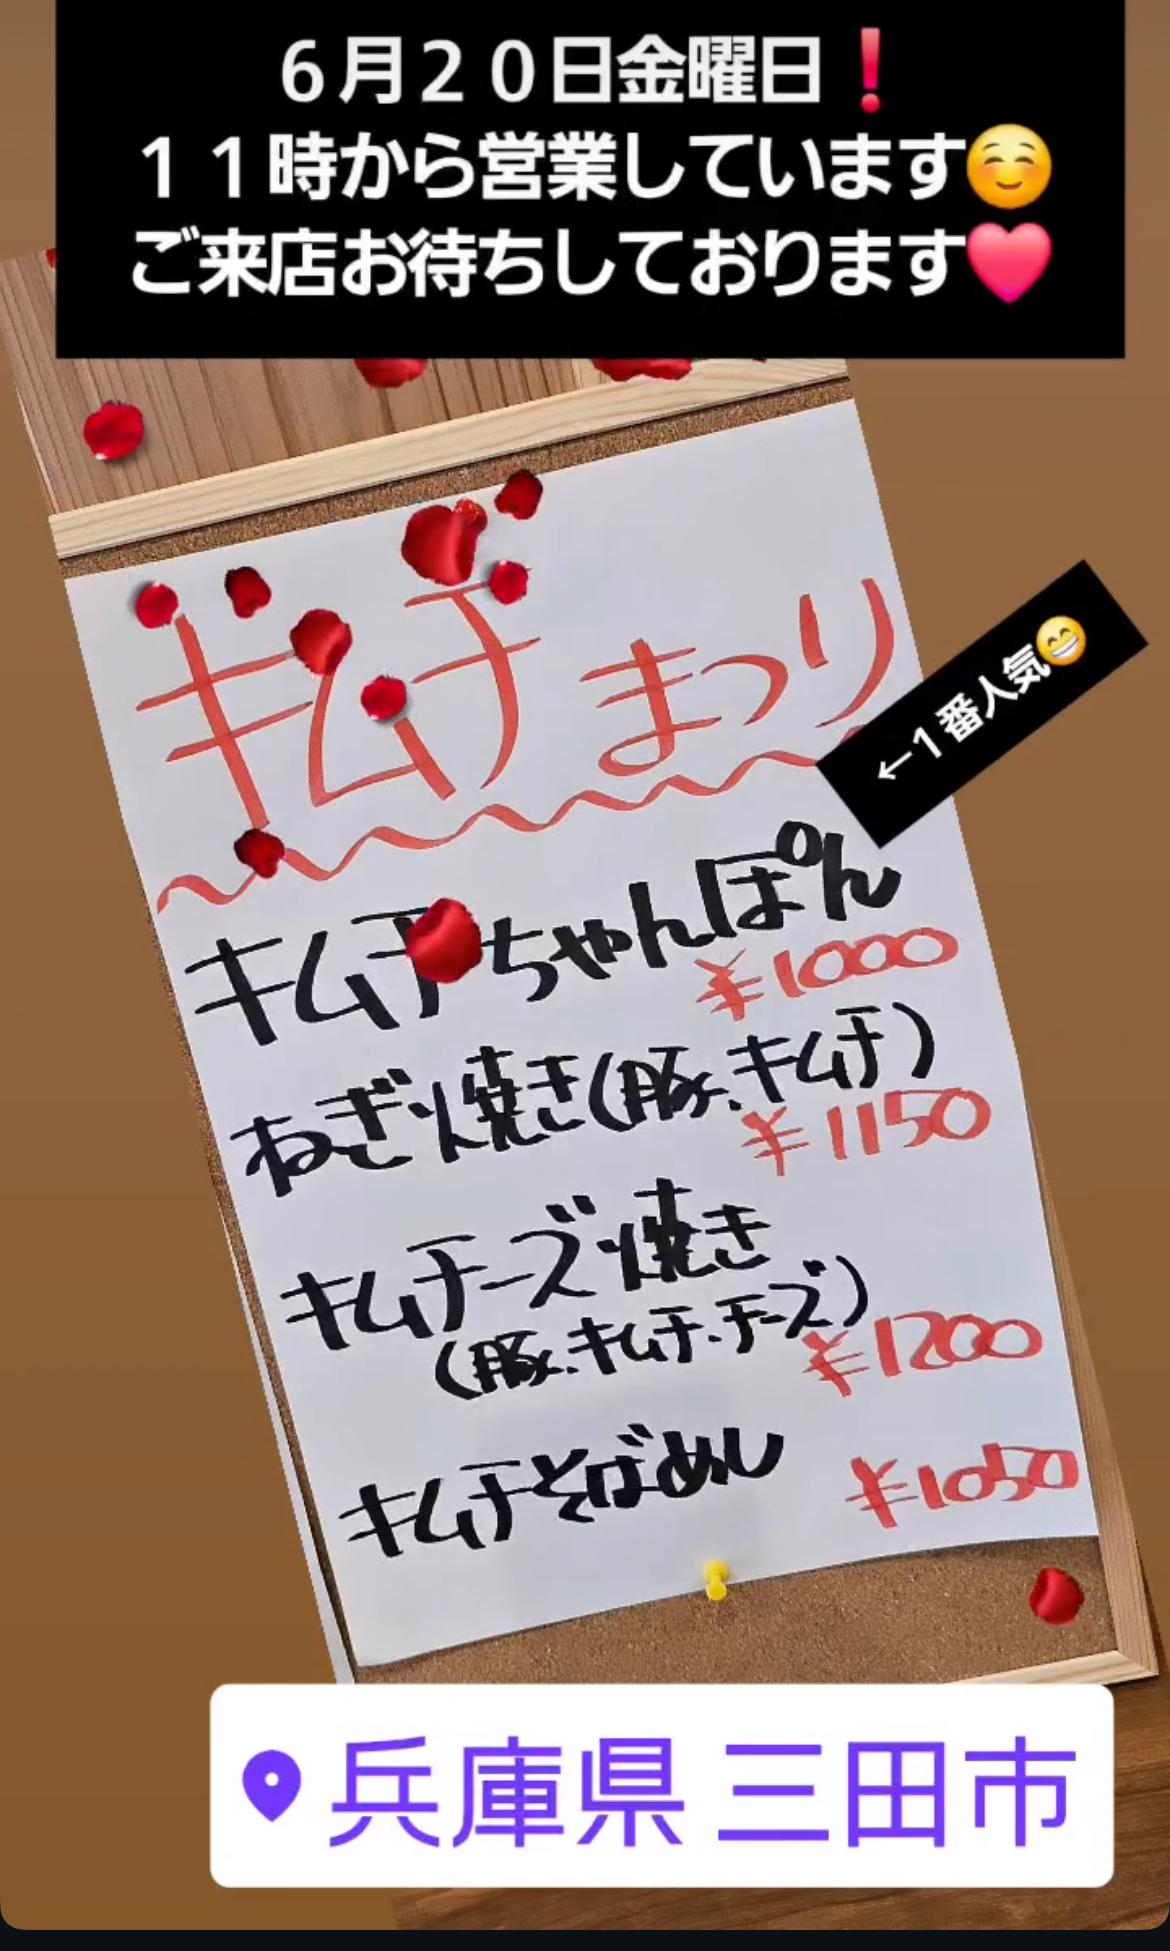 6月20日金曜日❗
11時から営業しています☺️
ご来店お待ちしております❤️
キムチまつり
←1番人気😁
キムチちゃんぽん
¥1000
ねぎ焼き(豚、キムチ)
¥1150
キムチーズ焼き
(豚、キムチ、チーズ)
¥1200
キムチそばめし ¥1050
兵庫県 三田市